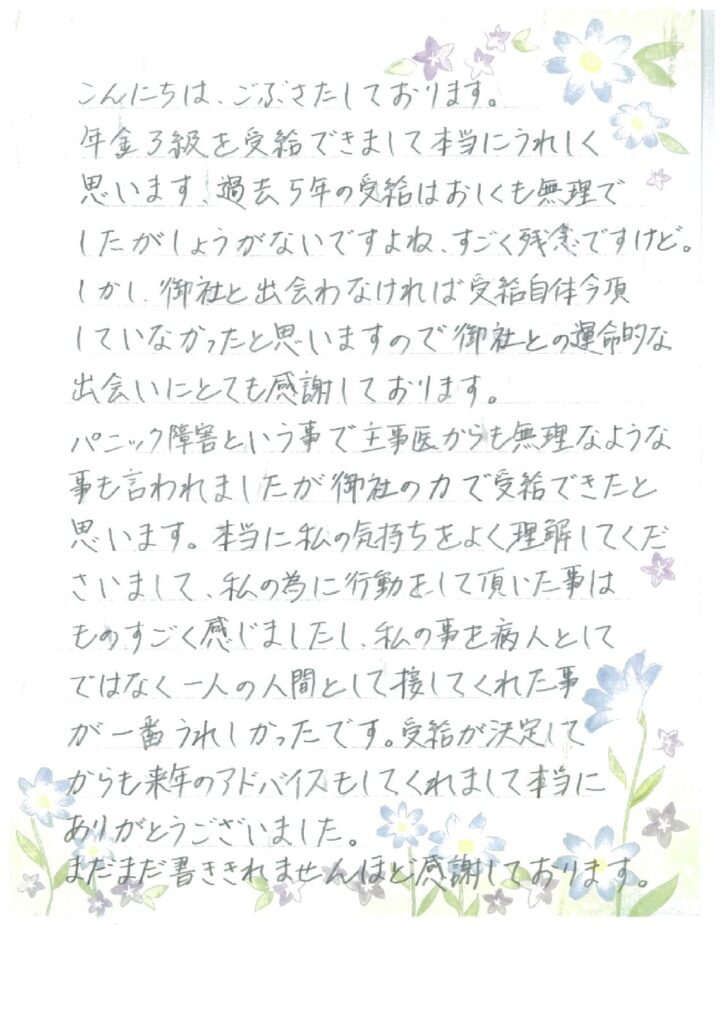 こんにちは、ごぶさたしております。
年金3級を受給できまして本当にうれしく
思います、過去5年の受給はおしくも無理で
したがしょうがないですよね、すごく残念ですけど。
しかし、御社と出会わなければ受給自体今項
していなかったと思いますので御社との運命的な
出会いにとても感謝しております。
パニック障害という事で主事医からも無理なような
事も言われましたが御社の力で受給できたと
思います。本当に私の気持ちをよく理解してくだ
さいまして、私の為に行動をして頂いた事は
ものすごく感じましたし、私の事を病人として
ではなく一人の人間として接してくれた事
が一番うれしかったです。受給が決定して
からも来年のアドバイスもしてくれまして本当に
ありがとうございました。
まだまだ書ききれませんほど感謝しております。